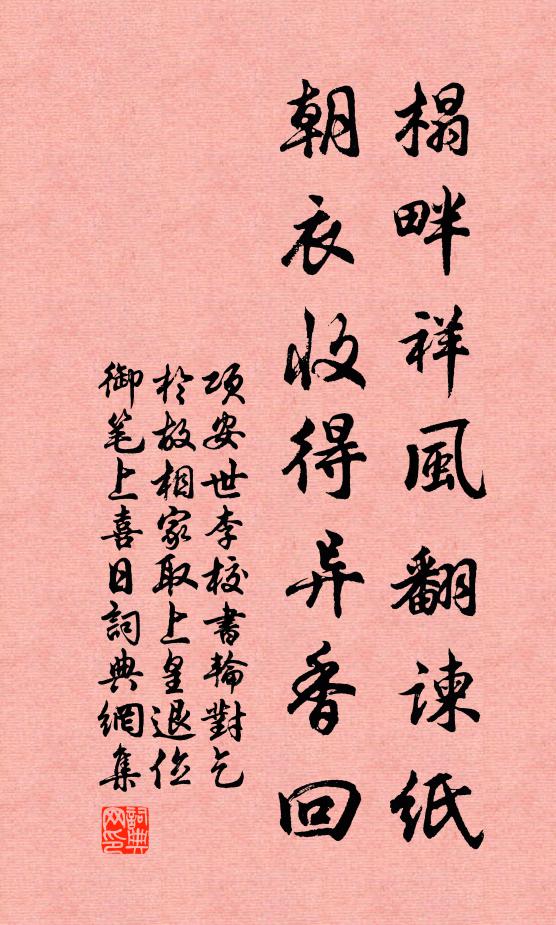 榻畔祥風翻諫紙
朝衣收得异香回
項安世李校書輪對乞
於故相家取上皇退位
御笔上喜日詞典網集
詞典网印